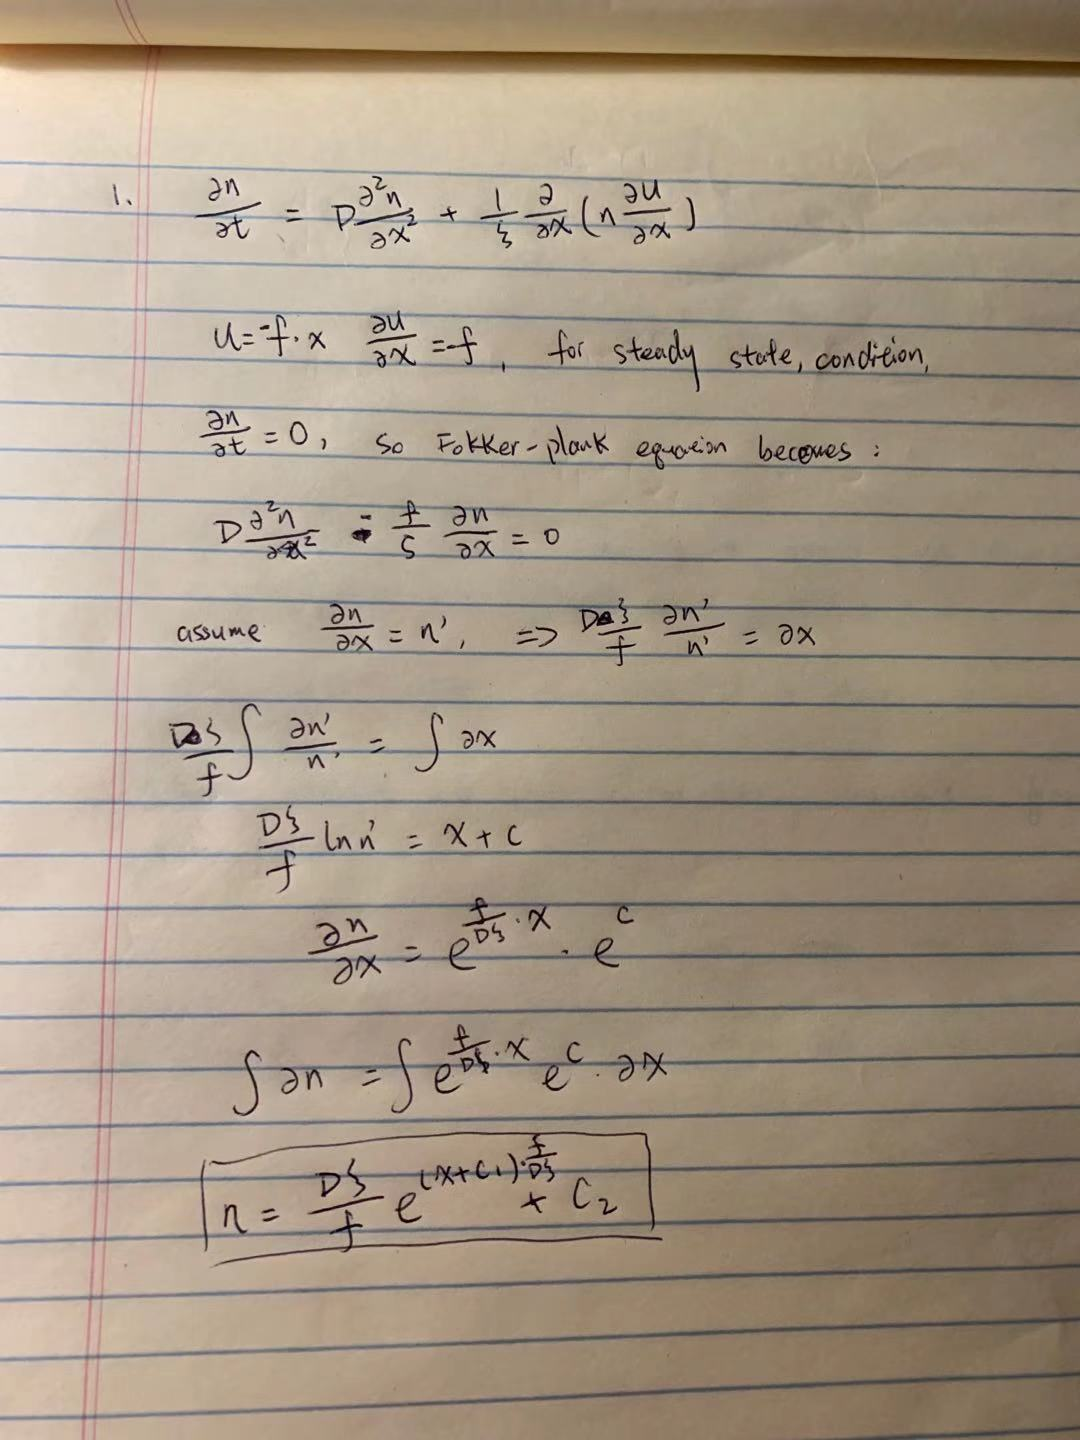 1. ∂n/∂t = D ∂²n/∂x² + 1/ξ ∂/∂x (n ∂U/∂x)
U = -f·x ∂U/∂x = -f, for steady state, condition,
∂n/∂t = 0, so Fokker-plank equation becomes:
D ∂²n/∂x² - f/ξ ∂n/∂x = 0
assume ∂n/∂x = n', => Dξ/f ∂n'/n' = ∂x
Dξ/f ∫ ∂n'/n' = ∫ ∂x
Dξ/f ln n' = x + c
∂n/∂x = e^(f/Dξ · x) · e^c
∫ ∂n = ∫ e^(f/Dξ · x) e^c · ∂x
n = Dξ/f e^((x+c₁)· f/Dξ) + C₂